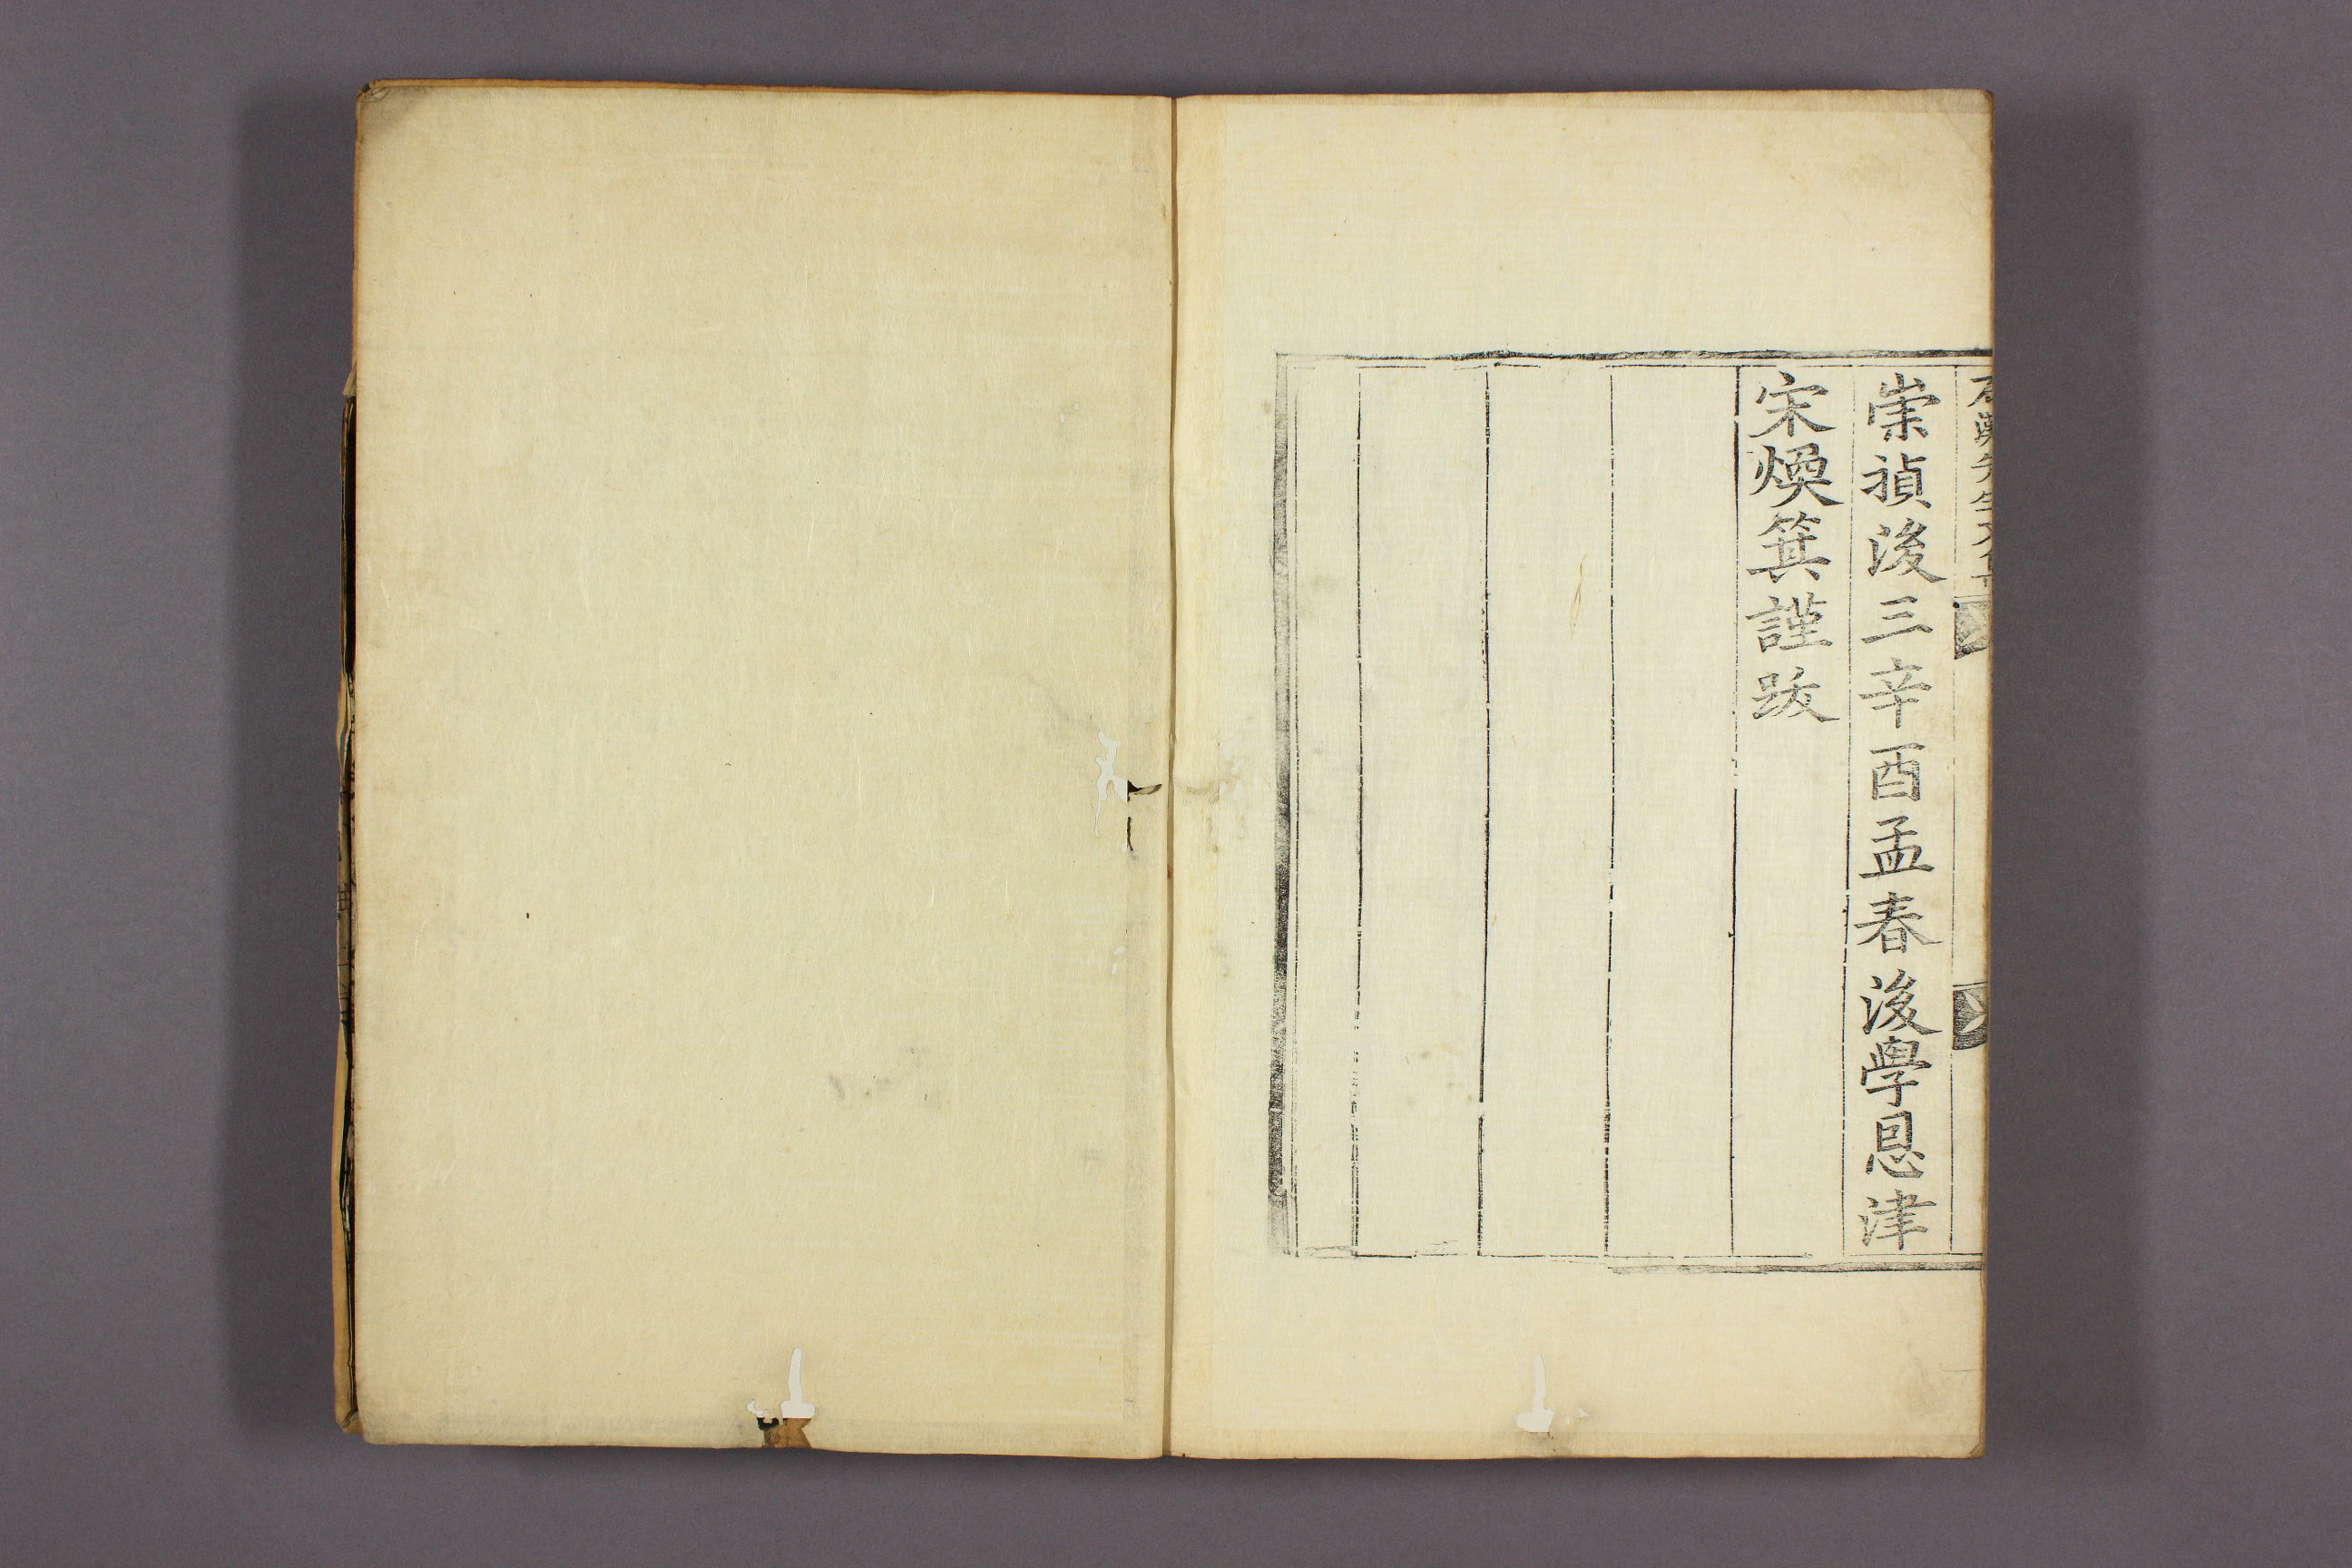 崇禎後三辛酉孟春後學恩津
宋煥箕謹跋